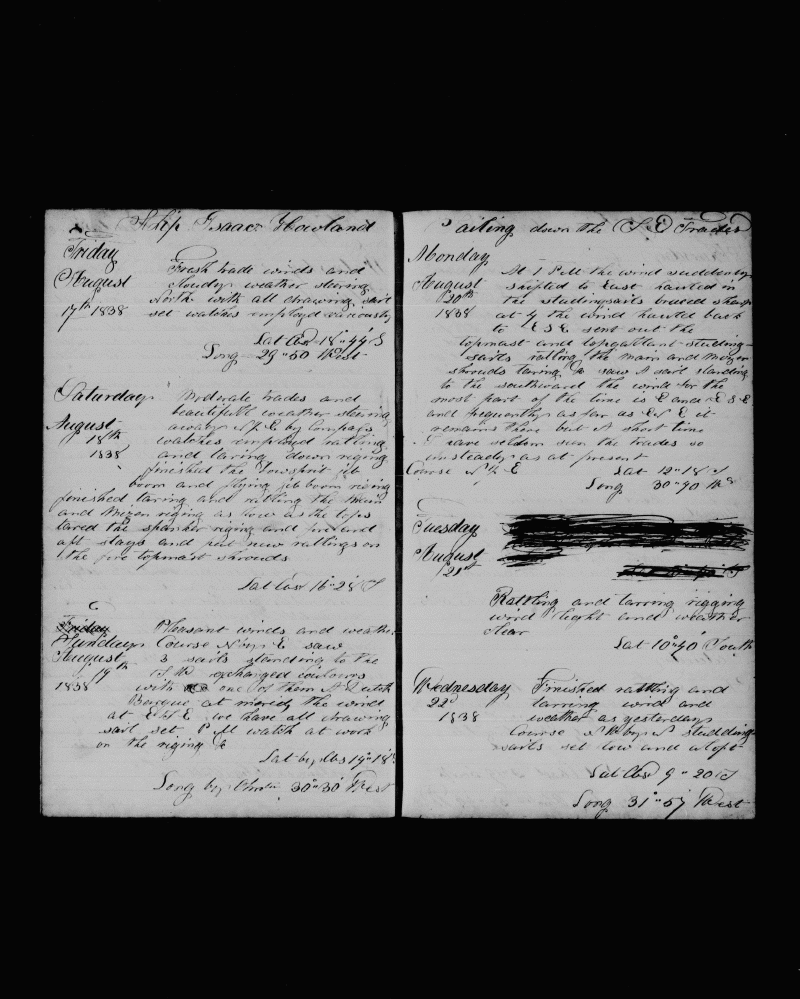 Ship Isaac Howland
Friday
August
17th 1838
Fresh trade winds and
cloudy weather stering
North with all drawing sail
set watches employd variously
Lat Obs 18" 44' S
Long 29" 50 West
Saturday
August
18th
1838
Moderate trades and
beautifull weather stering
away N b E by Compass
watches employed ratling
and taring down riging
finished the bowsprit jib
boom and flying jib boom riging
finished taring and ratling the Main
and Mizen riging as low as the tops
tared the spanker riging and fore and
aft stays and put new ratlings on
the fore topmast shrouds
Lat Obs 16" 28' S
Friday
Sunday
August
19th
1838
Pleasant winds and weather
Course N by E saw
3 sails standing to the
S W exchanged colours
with one of them A Dutch
Barque at merid the wind
at E S E we have all drawing
sail set P M watch at work
on the riging &
Lat by Obs 14" 18'
Long by Chro 30" 30' West
Sailing down the S E Trades
Monday
August
20th
1838
At 1 P M the wind suddenly
shifted to East hauled in
the studingsails braced sharp
at 4 the wind hauled back
to E S E sent out the
topmast and topgallant studing-
sails ratling the main and mizen
shrouds taring & saw A sail standing
to the southward the wind for the
most part of the time is E and E S E
and frequently as far as E N E it
remains there but A short time
I have seldom seen the trades so
unsteady as at present
Course N b E
Lat 12" 18' S
Long 30" 40 W
Tuesday
August
21st
Rattling and tarring rigging
wind light and weather
clear
Lat 10" 40' South
Wednesday
22d
1838
Finished rattling and
tarring wind and
weather as yesterday
Course N by N studding-
sails set low and aloft
Lat Obs 9" 20 S
Long 31" 57 West